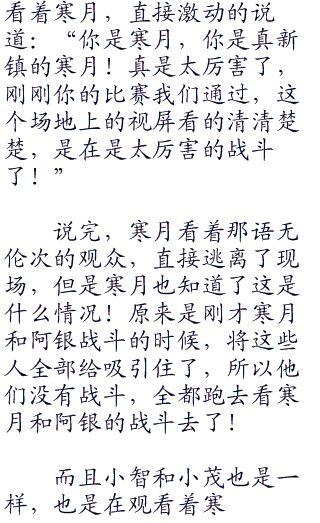 看着寒月，直接激动的说
道：“你是寒月，你是真新
镇的寒月！真是太厉害了，
刚刚你的比赛我们通过，这
个场地上的视屏看的清清楚
楚，是在是太厉害的战斗
了！”
说完，寒月看着那语无
伦次的观众，直接逃离了现
场，但是寒月也知道了这是
什么情况！原来是刚才寒月
和阿银战斗的时候，将这些
人全部给吸引住了，所以他
们没有战斗，全都跑去看寒
月和阿银的战斗去了！
而且小智和小茂也是一
样，也是在观看着寒